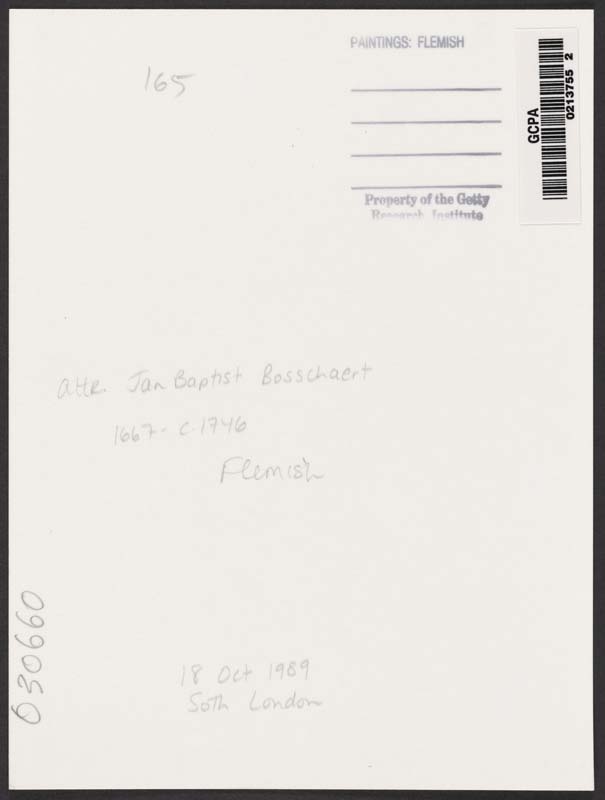 165
PAINTINGS: FLEMISH
GCPA
0213755 2
Property of the Getty
Research Institute
attr. Jan Baptist Bosschaert
1667- c.1746
Flemish
030660
18 Oct 1989
Soth London